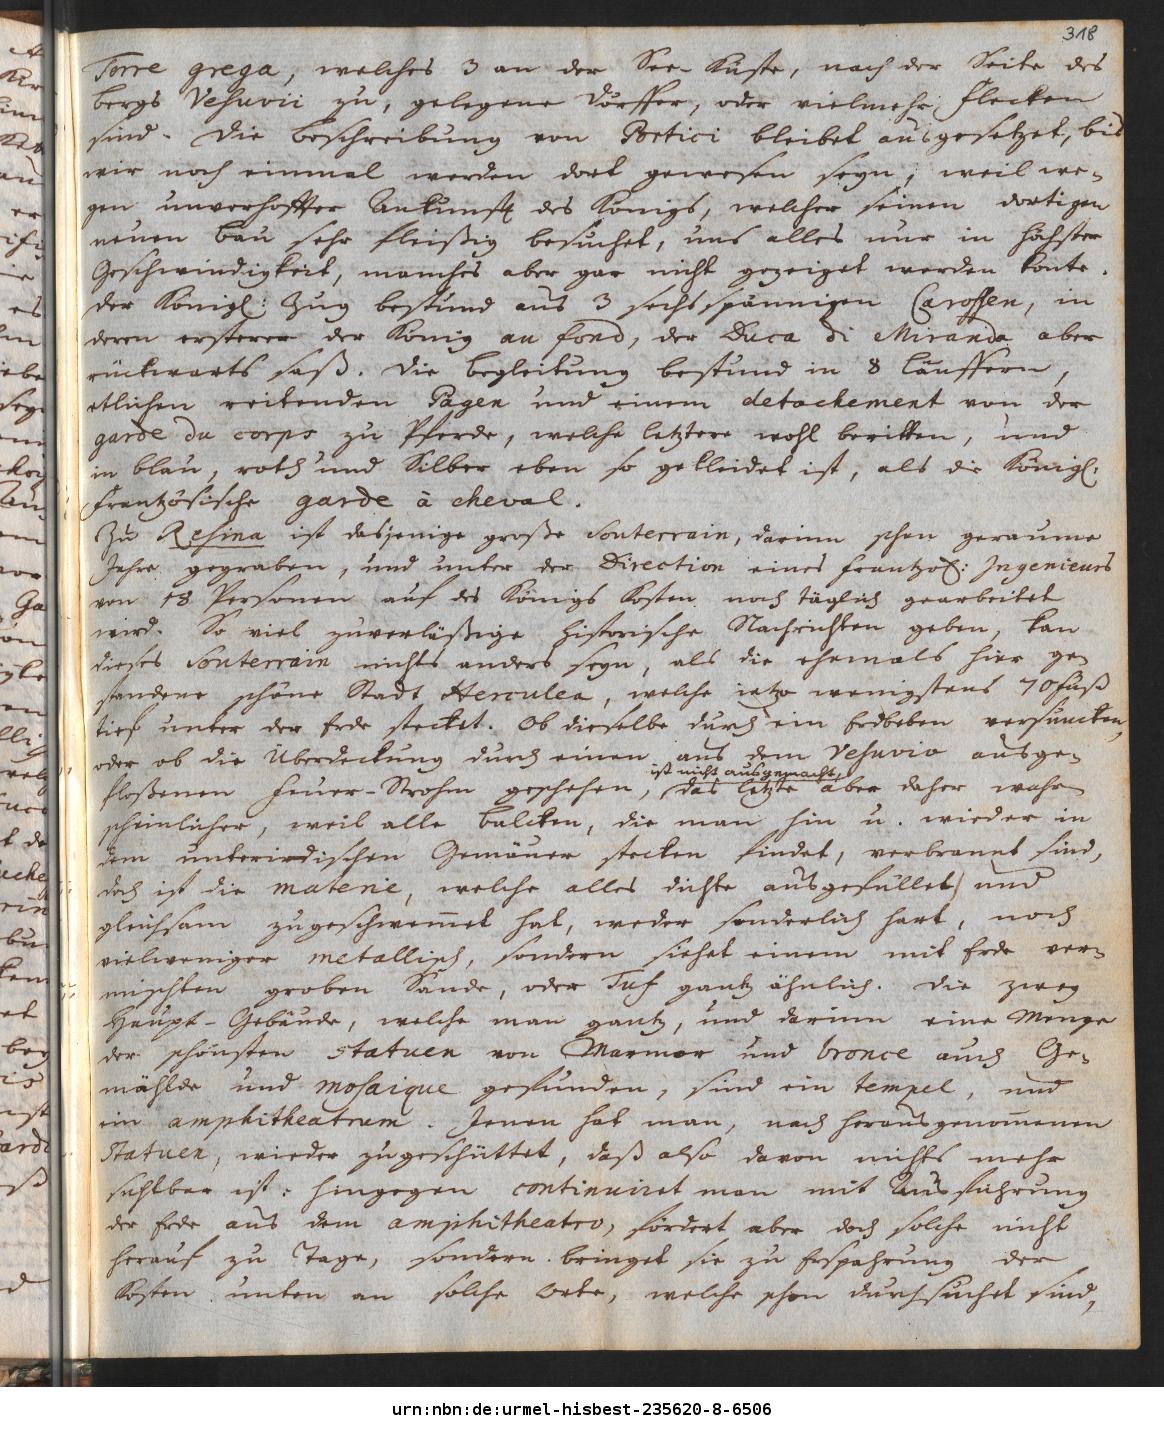 318
Torre grega, welches 3 an der See-Küste, nach der Seite des
bergs Vesuvii zu, gelegene Dörffer, oder vielmehr flecken
sind. Die beschreibung von Portici bleibet ausgesetzet, bis
wir noch einmal werden dort gewesen seyn, weil we-
gen unverhoffter Ankunft des Königs, welcher seinen dortigen
neuen bau sehr fleißig besuchet, uns alles nur in höchster
Geschwindigkeit, manches aber gar nicht gezeiget werden konte.
der Königl: Zug bestund aus 3 sechsspännigen Carossen, in
deren ersterer der König au fond, der Duca di Miranda aber
rückwarts saß. Die begleitung bestund in 8 Läuffern,
etlichen reitenden Pagen und einem detachement von der
garde du corps zu Pferde, welche letztere wohl beritten, und
in blau, roth und Silber eben so gekleidet ist, als die Königl:
frantzösische garde à cheval.
Zu Resina ist dasjenige große Souterrain, darinn schon geraume
Jahre gegraben, und unter der Direction eines frantzös: Ingenieurs
von 18 Personen auf des Königs Kosten noch täglich gearbeitet
wird. So viel zuverläßige historische Nachrichten geben, kan
dieses Souterrain nichts anders seyn, als die ehemals hier ge-
standene schöne Stadt Herculea, welche ietzo wenigstens 70 fuß
tief unter der Erde stecket. Ob dieselbe durch ein Erdbeben versuncken,
oder ob die Überdeckung durch einen aus dem Vesuvio ausge-
ist nicht ausgemacht,
floßenen Feuer-Strohm geschehen, das letzte aber daher wahr-
scheinlicher, weil alle balcken, die man hin u. wieder in
dem unterirdischen Gemäuer stecken findet, verbrannt sind,
doch ist die materie, welche alles dichte ausgefüllet) und
gleichsam zugeschwem̄et hat, weder sonderlich hart, noch
vielweniger metallisch, sondern siehet einem mit Erde ver-
mischten groben Sande, oder Tuf gantz ähnlich. Die zwey
Haupt-Gebäude, welche man gantz, und darinn eine Menge
der schönsten statuen von Marmor und bronce auch Ge-
mählde und mosaique gefunden, sind ein tempel, und
ein amphitheatrum. Jenen hat man, nach herausgenom̄enen
Statuen, wieder zugeschüttet, daß also davon nichts mehr
sichtbar ist; hingegen continuiret man mit Ausführung
der Erde aus dem amphitheatro, fördert aber doch solche nicht
herauf zu Tage, sondern bringet sie zu Erspahrung der
Kosten unten an solche Orte, welche schon durchsuchet sind,
urn:nbn:de:urmel-hisbest-235620-8-6506